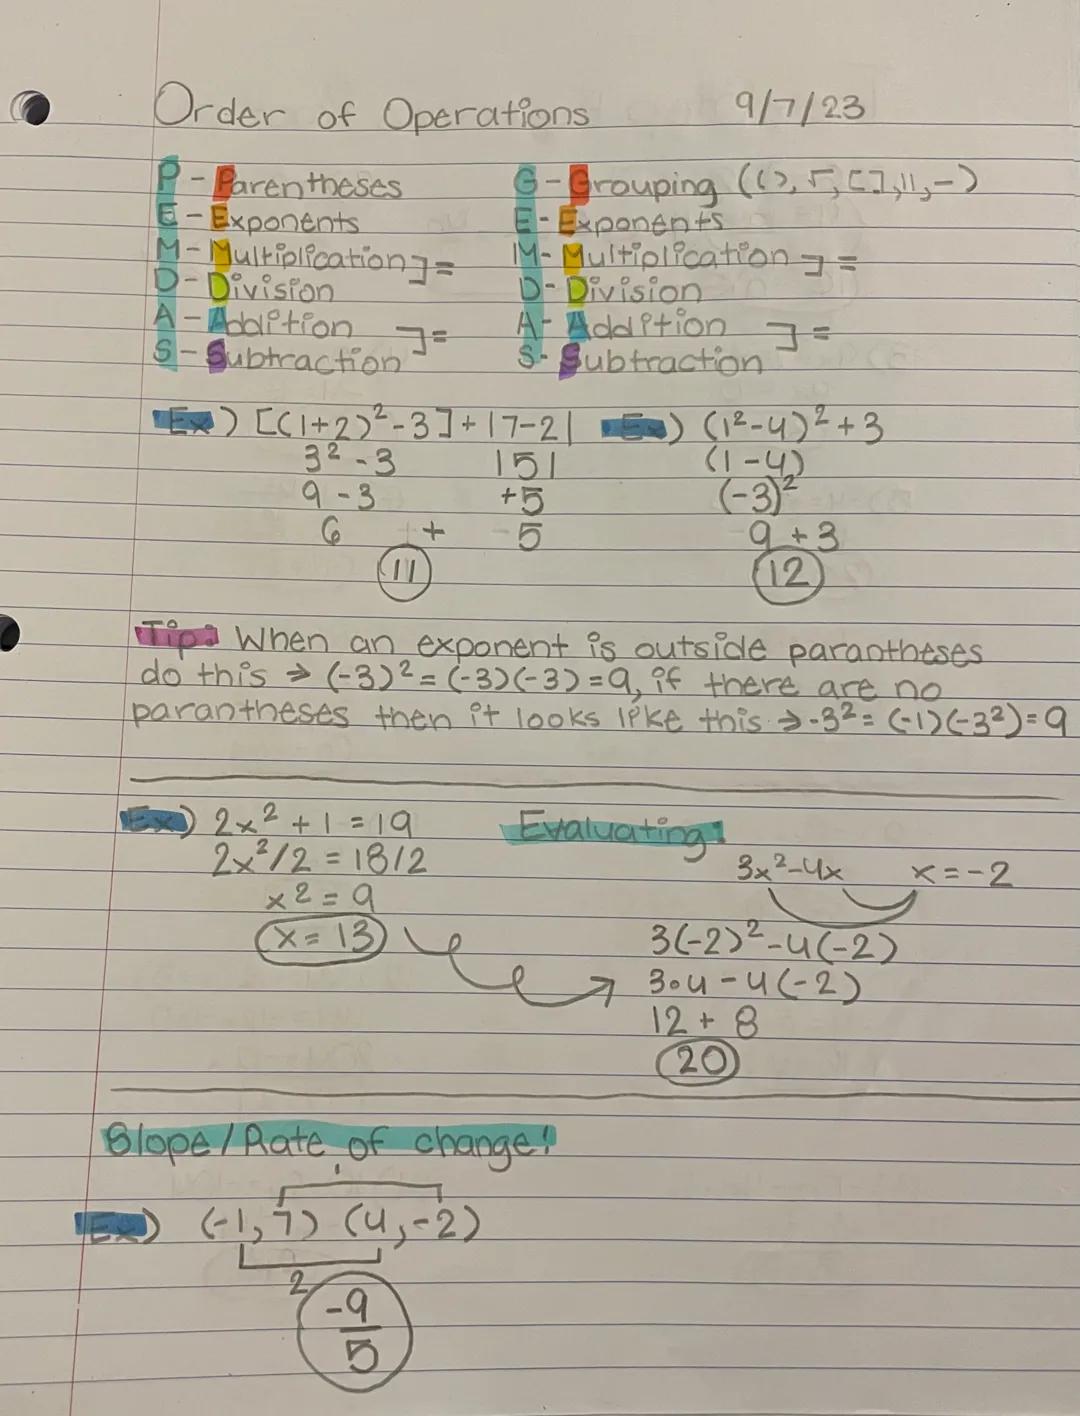 Order of Operations 9/7/23
P - Parentheses
E - Exponents
M - Multiplication ] =
D - Division
A - Addition ] =
S - Subtraction
G - Grouping (( ), √, [ ], | |, -)
E - Exponents
M - Multiplication ] =
D - Division
A - Addition ] =
S - Subtraction
Ex) [(1+2)²-3] + |7-2|
3² - 3 |5|
9 - 3 +5
6 + 5
11
Ex) (1²-4)² + 3
(1-4)
(-3)²
9 + 3
12
Tip: When an exponent is outside parantheses
do this → (-3)² = (-3)(-3) = 9, if there are no
parantheses then it looks like this → -3² = (-1)(-3²) = 9
Ex) 2x² + 1 = 19
2x²/2 = 18/2
x² = 9
x = 13
Evaluating!
3x²-4x x = -2
3(-2)²-4(-2)
3•4-4(-2)
12 + 8
20
Slope/Rate of change!
1
Ex) (-1, 7) (4, -2)
2
-9
5